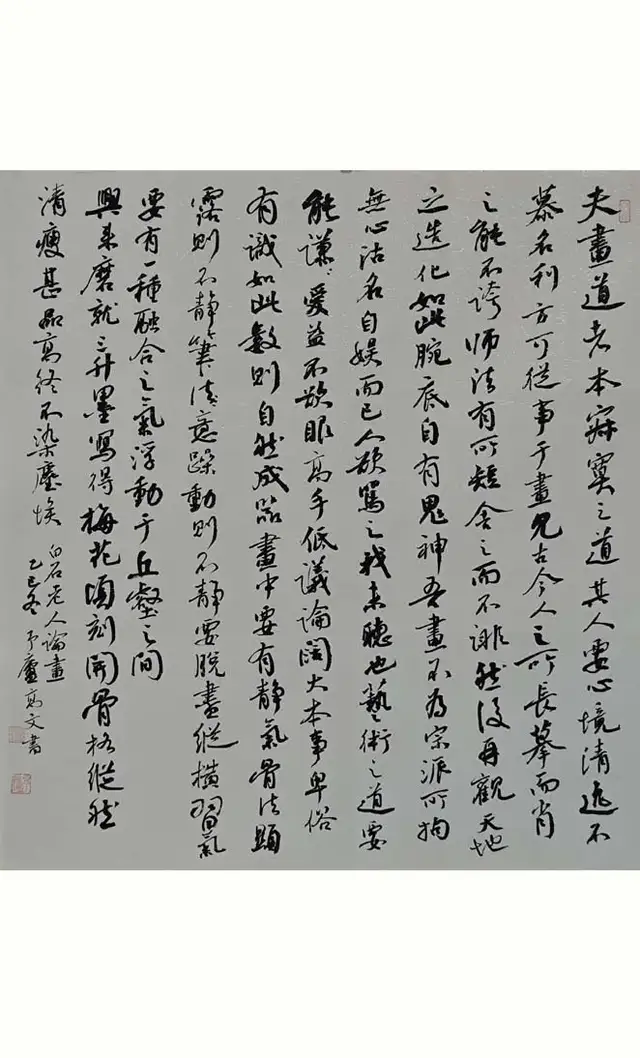 夫畫道者本寂寞之道其人要心境清逸不
慕名利方可從事于畫見古今人之所長摹而肖
之能不誇師法有所短舍之而不誹然後再觀天地
之造化如此腕底自有鬼神吾畫不為宗派所拘
無心沽名自娛而已人欲罵之我未聽也藝術之道要
能謙謙受益不欲眼高手低議論闊大本事卑俗
有識如此數則自然成器畫中要有靜氣骨法顯
露則不靜筆法意躁動則不靜要脫畫縱橫習氣
要有一種融合之氣浮動于丘壑之間
興來磨就三升墨寫得梅花頃刻開骨格縱然
清瘦甚品高終不染塵埃
白石老人論畫
乙巳冬 廬高文書